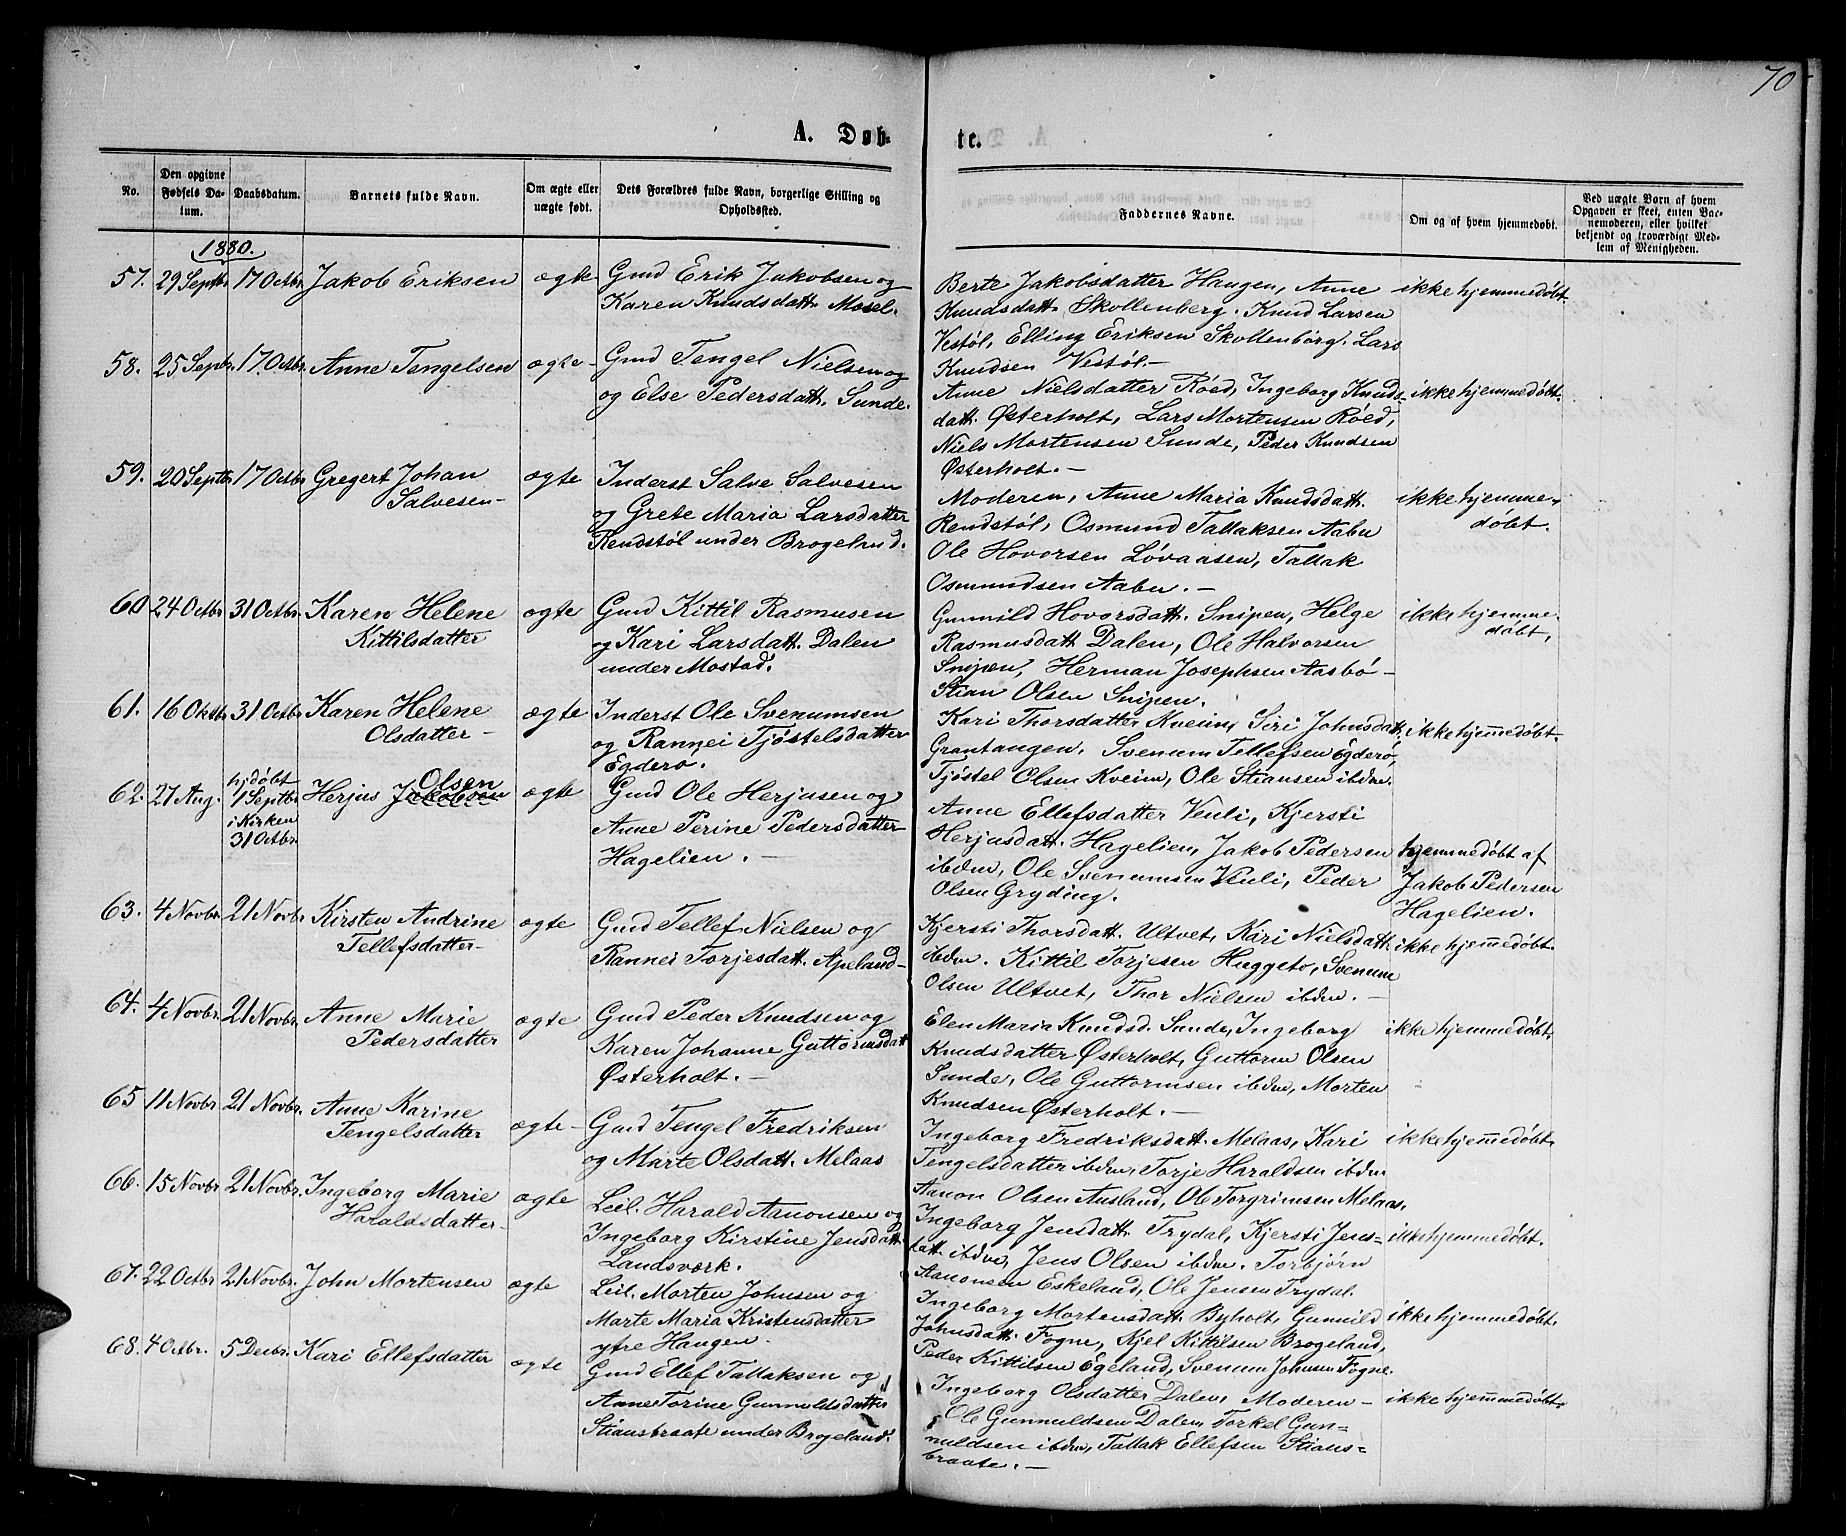 70
A. Døb-
te.
No.
Den opgivne Fødsels Da-tum.
Daabsdatum.
Barnets fulde Navn.
Om ægte eller uægte født.
Dets Forældres fulde Navn, borgerlige Stilling og Opholdssted.
Faddernes Navne.
Om og af hvem hjemmedøbt.
Ved uægte Børn af hvem Opgaven er skeet, enten Bar-nemoderen, eller hvilket bekjendt og troværdigt Med-lem af Menigheden.
1880.
57. 29 Septbr 17 Octbr Jakob Eriksen ægte Gmd Erik Jakobsen og
Karen Knudsdatt. Mosel.
Berte Jakobsdatter Haugen, Anne
Knudsdatt. Skollenberg. Knud Larsen
Vestøl, Elling Eriksen Skollenborg. Lars
Knudsen Vestøl.-
ikke hjemmedøbt
58. 25 Sepbr. 17. Octbr. Anne Tengelsen ægte- Gmd Tengel Nielsen og
og Else Pedersdatt. Sunde.
Anne Nielsdatter Röed, Ingeborg Knuds-
datt. Østerholt, Lars Mortensen Röed,
Niels Mortensen Sunde, Peder Knudsen
Østerholt.-
ikke hjemmedøbt.
59. 20 Septbr 17 Octbr Gregert Johan
Salvesen-
ægte
Inderst Salve Salvesen
og Grete Maria Larsdatter
Rendstøl under Brogelund.
Moderen, Anne Maria Knudsdatt.
Rendstøl, Osmund Tallaksen Aabu
Ole Hovorsen Løvaasen, Tallak
Osmundsen Aabu.-
ikke hjemme-
døbt.
60 24 Octbr 31 Octbr. Karen Helene
Kittilsdatter
ægte
Gmd Kittil Rasmusen
og Kari Larsdatt. Dalen
under Mostad.
Gunnild Hovorsdatt. Snipen, Helge
Rasmusdatt Dalen, Ole Halvorsen
Snipen, Herman Josephsen Aasbø-
Stian Olsen Snipen.
ikke hjemme-
døbt,
61. 16 Oktbr 31 Octbr Karen Helene
Olsdatter-
ægte
Inderst Ole Svenumsen
og Rannei Tjøstelsdatter
Egderø.
Kari Thorsdatter Kveim, Siri Johnsdatt.
Grantangen. Svenum Tellefsen Egderö,
Tjøstel Olsen Kveim, Ole Stiansen ibdm.
ikke hjemmedøbt-
62. 27 Aug.
hjdøbt
1 Septbr
i Kirken
31 Octbr.
Herjus Jakobsen
Olsen
ægte
Gmd Ole Herjusen og
Anne Perine Pedersdatter
Hagelien.-
Anne Ellefsdatter Veuli, Kjersti
Herjusdatt. Hagelien, Jakob Pedersen
ibdm, Ole Svenumsen Veuli, Peder
Olsen Gryding.
hjemmedøbt af
Jakob Pedersen
Hagelien.
63. 4 Novbr. 21 Novbr Kirsten Andrine
Tellefsdatter-
ægte
Gmd Tellef Nielsen og
Rannei Torjesdatt. Apeland-
Kjersti Thorsdatt. Ultvet, Kari Nielsdatt.
ibdm. Kittil Torjesen Huggeto, Svenum
Olsen Ultvet, Thor Nielsen ibdm.-
ikke hjemmedøbt.
64. 4 Novbr. 21 Novbr. Anne Marie
Pedersdatter
ægte
Gmd Peder Knudsen og
Karen Johanne Guttormsdatt
Østerholt.-
Elen Maria Knudsd. Sunde, Ingeborg
Knudsdatter Østerholt, Guttorm Olsen
Sunde, Ole Guttormsen ibdm, Morten
Knudsen Østerholt.-
ikke hjemmedøbt.
65 11 Novbr 21 Novbr. Anne Karine
Tengelsdatter
ægte-
Gmd Tengel Fredriksen
og Marte Olsdatt. Melaas
Ingeborg Fredriksdatt. Melaas, Kari
Tengelsdatter ibdm, Torje Haraldsen ibdm
Aanon Olsen Ausland, Ole Torgrimsen Melaas,
ikke hjemmedøbt.
66. 15 Novbr 21 Novbr. Ingeborg Marie
Haraldsdatter-
ægte
Leil. Harald Aanonsen og
Ingeborg Kirstine Jensdatt.
Landsværk.
Ingeborg Jensdatt. Trydal, Kjersti Jens-
datt. ibdm, Jens Olsen ibdm. Torbjørn
Aanonsen Eskeland, Ole Jensen Trydal.
ikke hjemmedøbt.
67. 22 Octbr 21 Novbr. John Mortensen ægte
Leil. Morten Johnsen og
Marte Maria Kristensdatter
ytre Haugen.
Ingeborg Mortensdatt. Byholt, Gunnild
Johnsdatt. Fogne, Kjel Kittilsen Brogeland,
Peder Kittilsen Egeland, Svenum Johnsen Fogne.
ikke hjemmedøbt.
68. 4 Octbr. 5 Decbr. Kari Ellefsdatter ægte
Gmd Ellef Tallaksen og
Anne Torine Gunnuldsdatter
Stiansbraate under Brogeland.
Ingeborg Olsdatter Dalen, Moderen-
Ole Gunnuldsen Dalen, Torkel Gun-
nuldsen ibdm, Tallak Ellefsen Stians-
braate.-
ikke hjemmedøbt.